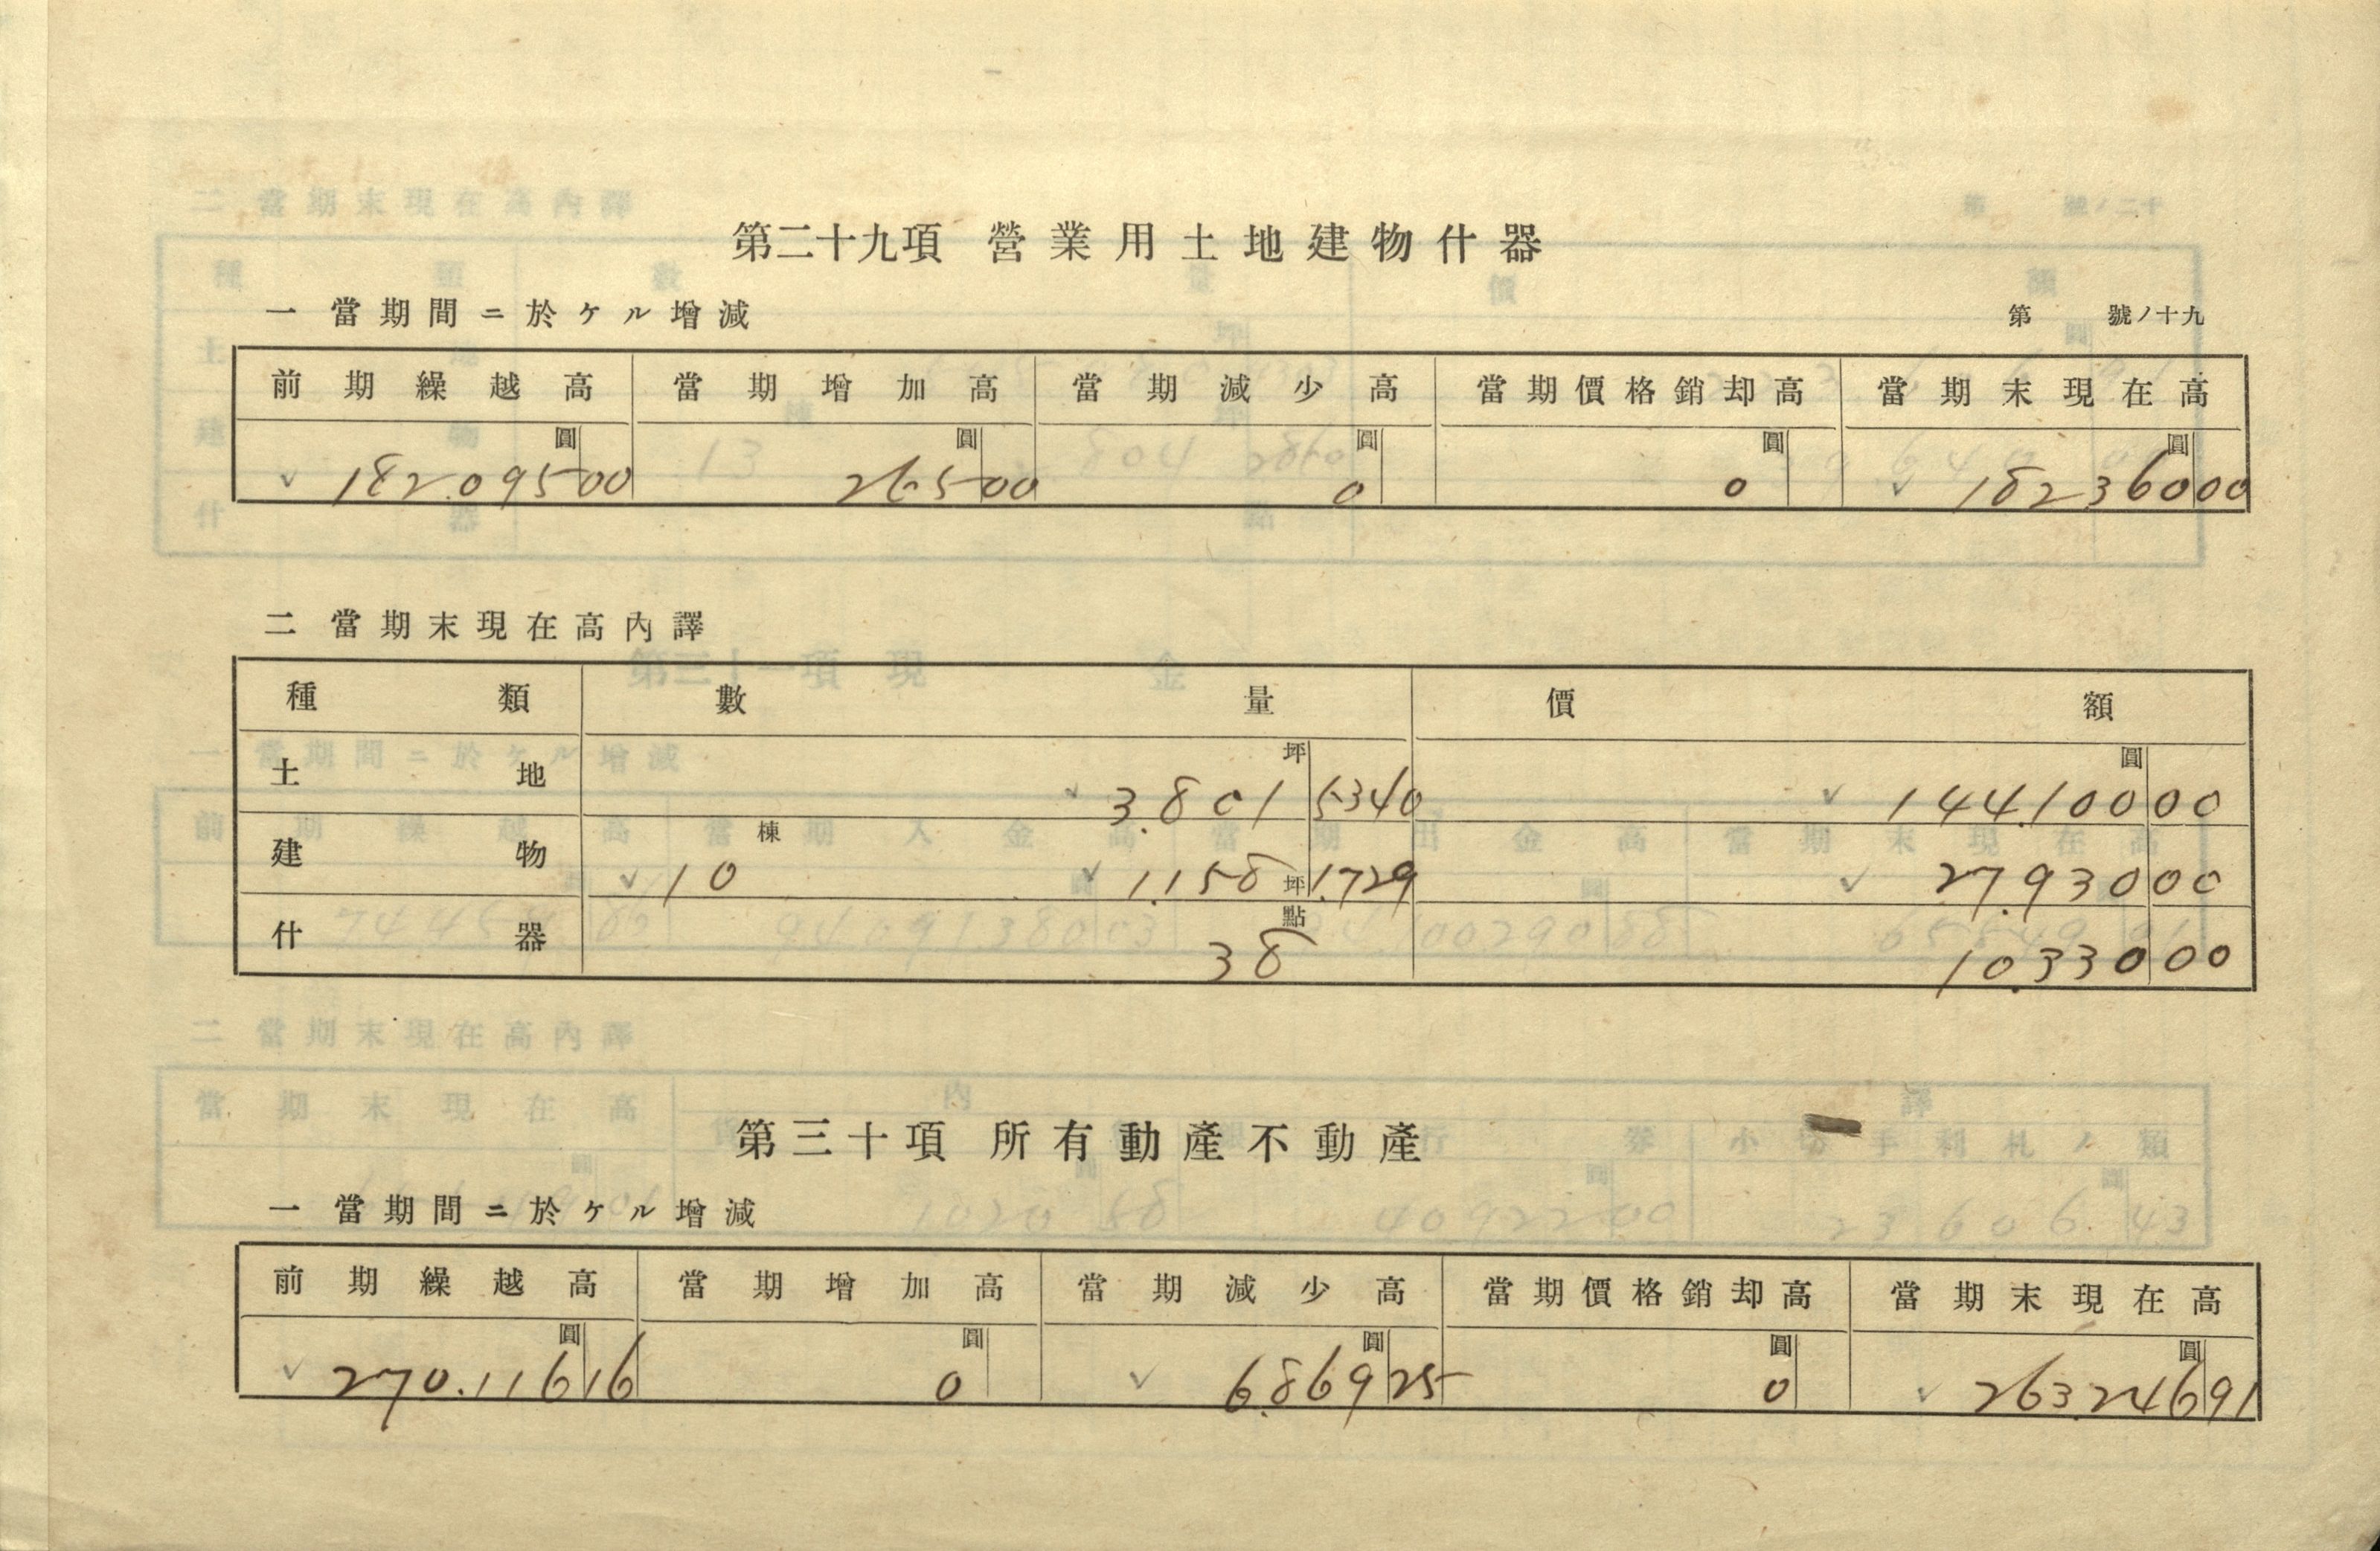 第二十九項 營業用土地建物什器
一 當期間ニ於ケル增減 第 號ノ十九
前期繰越高 當期增加高 當期減少高 當期價格銷却高 當期末現在高
圓 圓 圓 圓 圓
182.095 00 265 00 0 0 182.360 00
二 當期末現在高內譯
種類 數量 價額
土地 3.801坪5340 144.100圓00
建物 10棟 1.158坪1.729 27.930 00
什器 38點 10.330 00
第三十項 所有動產不動產
一 當期間ニ於ケル增減
前期繰越高 當期增加高 當期減少高 當期價格銷却高 當期末現在高
圓 圓 圓 圓 圓
270.116 16 0 6.869 25 0 263.246 91